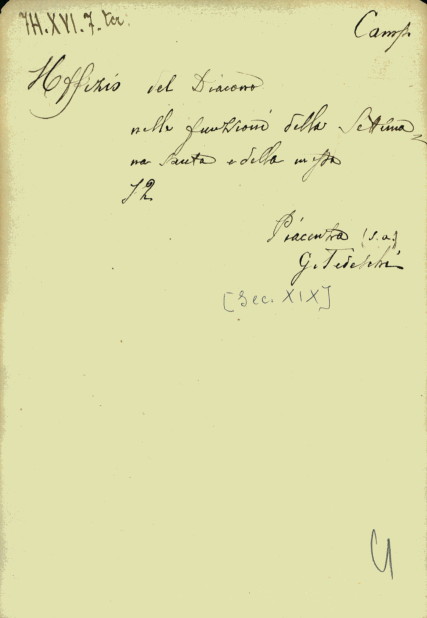 7H.XVI.7.ter.
Camp.
Uffizio del Diacono
nelle funzioni della Settima=
na Santa e della messa
12
Piacenza (s.a.)
G. Tedeschi
[Sec. XIX]